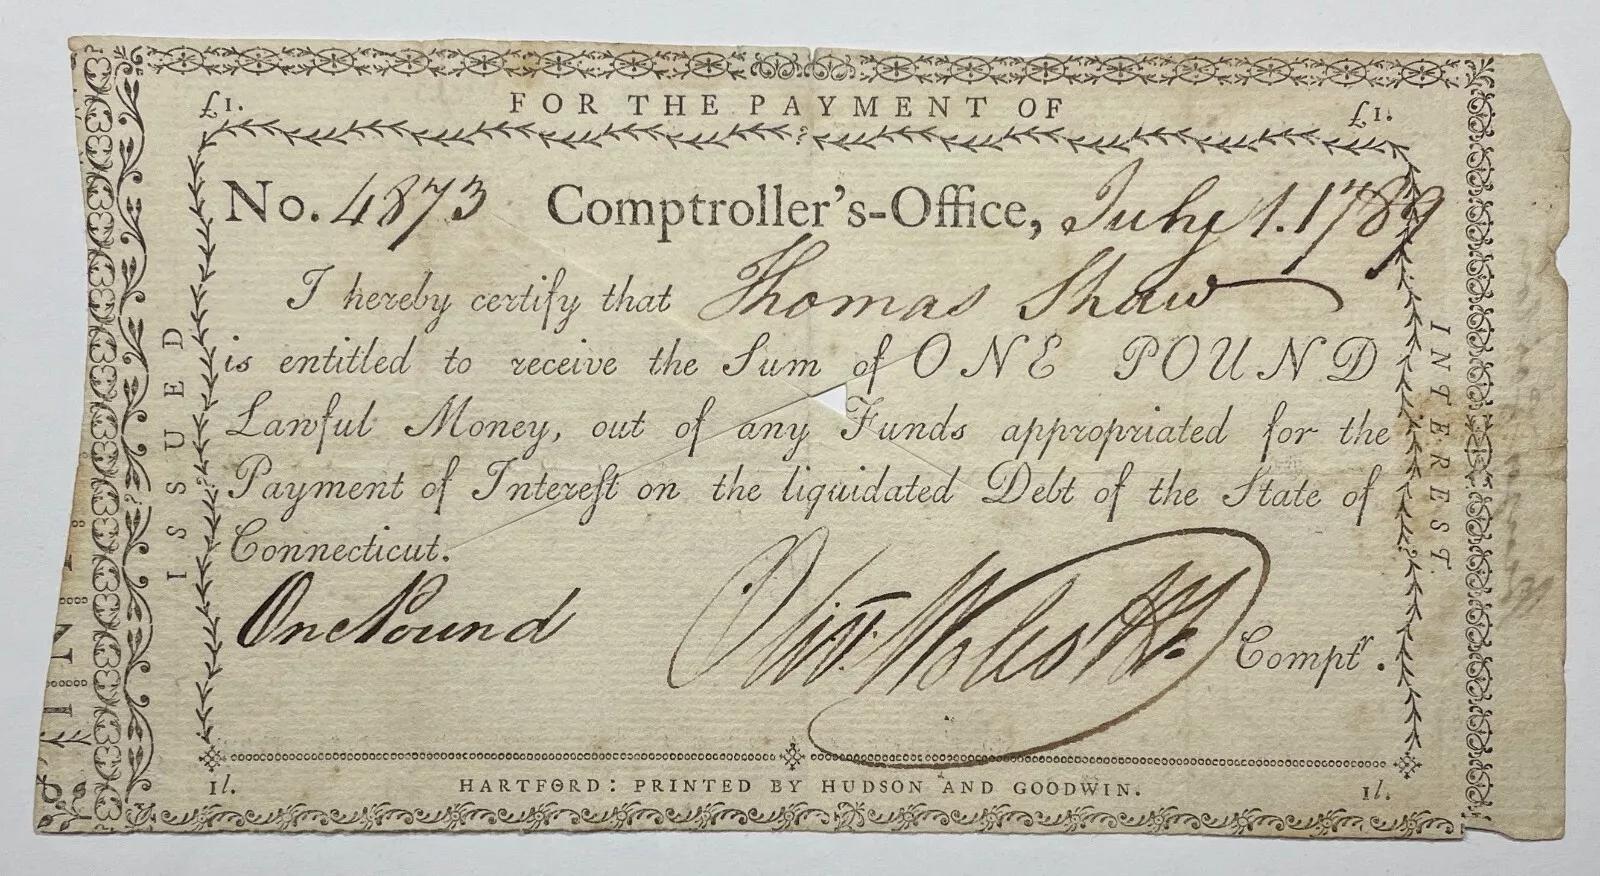 £1. FOR THE PAYMENT OF £1.
No. 4873 Comptroller's-Office, July 1. 1789
I hereby certify that Thomas Shaw
is entitled to receive the Sum of ONE POUND
Lawful Money, out of any Funds appropriated for the
Payment of Intereſt on the liquidated Debt of the State of
Connecticut.
One Pound Olivr. Wolcott Jr. Comptr.
1l. HARTFORD: PRINTED BY HUDSON AND GOODWIN. 1l.
ISSUED
INTEREST.